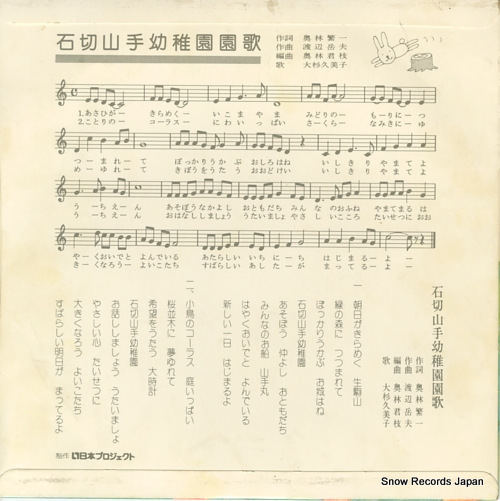 石切山手幼稚園園歌
作詞 奥林繁一
作曲 渡辺岳夫
編曲 奥林君枝
歌 大杉久美子
1.あさひがー きらめくー いこまやま みどりのー もーりにーつ
2.ことりのー コーラスー にわいっぱい さーくらー なみきにーゆ
つーまれーて ぽっかりうかぶ おしろはね いしきりやまてよ
めーゆれーて きぼうをうたう おおどけい いしきりやまてよ
うーちえーん あそぼうなかよし おともだちみんな のおふね やまてまるは
うーちえーん おはなししましょう うたいましょやさし いこころ たいせつにおお
やーくおいでと よんでいる あたらしいいちにーち はじまるーよー
きーくなろうー よいこたち すばらしいあしたーが まってるーよー
石切山手幼稚園園歌
作詞 奥林繁一
作曲 渡辺岳夫
編曲 奥林君枝
歌 大杉久美子
一 朝日がきらめく 生駒山
緑の森に つつまれて
ぽっかりうかぶ お城はね
石切山手幼稚園
あそぼう 仲よし おともだち
みんなのお船 山手丸
はやくおいでと よんでいる
新しい一日 はじまるよ
二、小鳥のコーラス 庭いっぱい
桜並木に 夢ゆれて
希望をうたう 大時計
石切山手幼稚園
お話ししましょう うたいましょ
やさしい心 たいせつに
大きくなろう よいこたち
すばらしい明日が まってるよ
制作 日本プロジェクト
Snow Records Japan